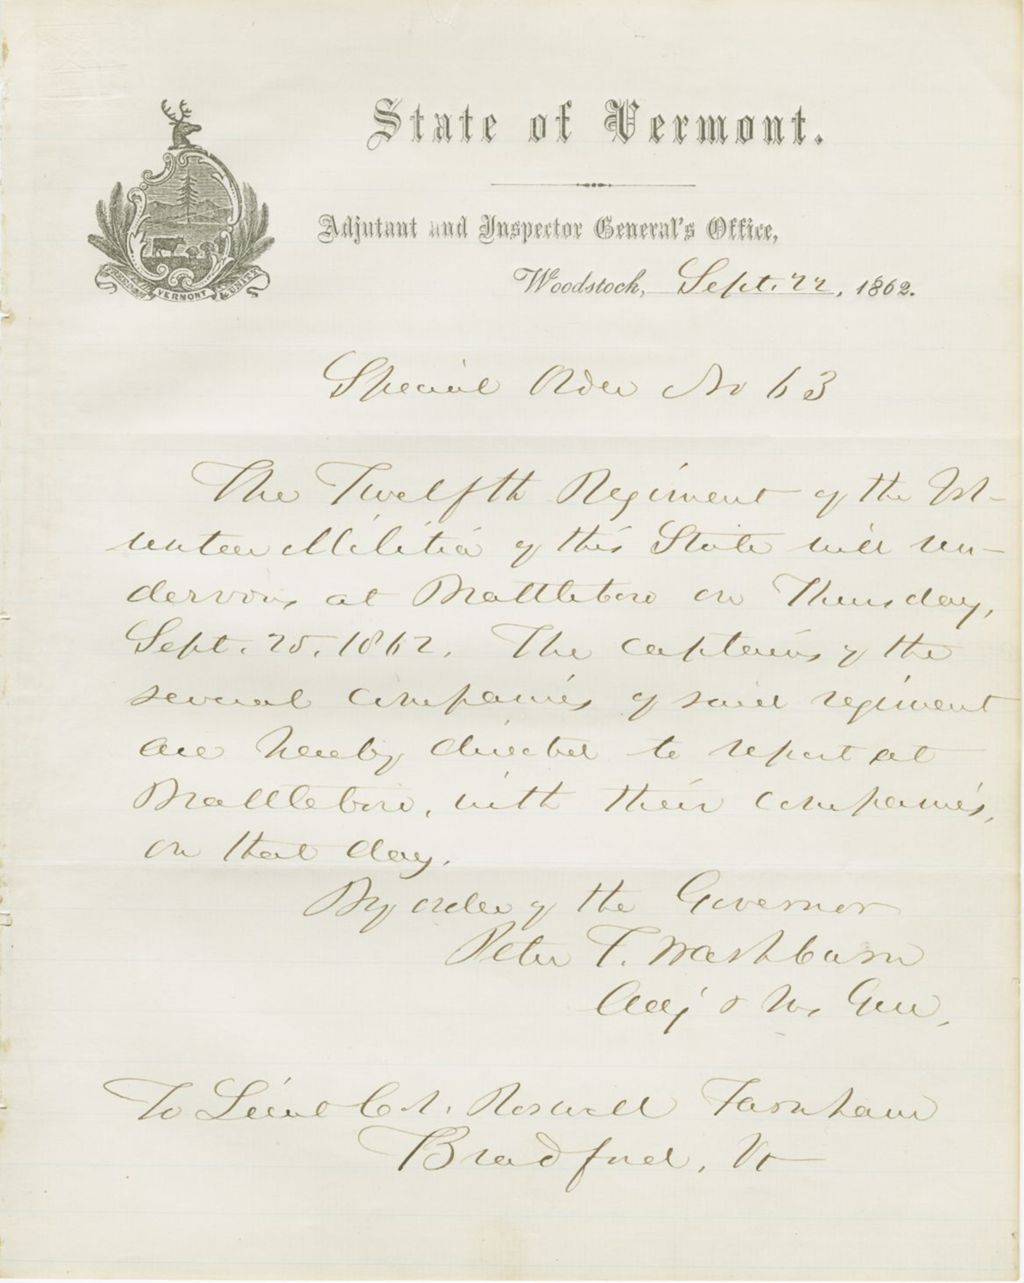 State of Vermont.
Adjutant and Inspector General's Office,
VERMONT
& UNITY
Woodstock, Sept. 22, 1862.
Special Order No 63
The Twelfth Regiment of the Vol-
unteer Militia of this State will ren-
dezvous at Brattleboro on Thursday,
Sept. 25, 1862. The captains of the
several companies of said regiment
are hereby directed to report at
Brattleboro, with their companies,
on that day.
By order of the Governor
Peter T. Washburn
Adj & Ins Gen.
To Lieut Col. Roswell Farnham
Bradford, Vt